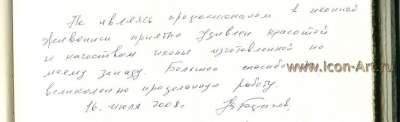 Не являясь профессионалом в иконной
живописи приятно удивлен красотой
и качеством иконы изготовленной по
моему заказу. Большое спасибо
www.Icon-Art.
великолепно проделанную работу.
16. июля 2008г.